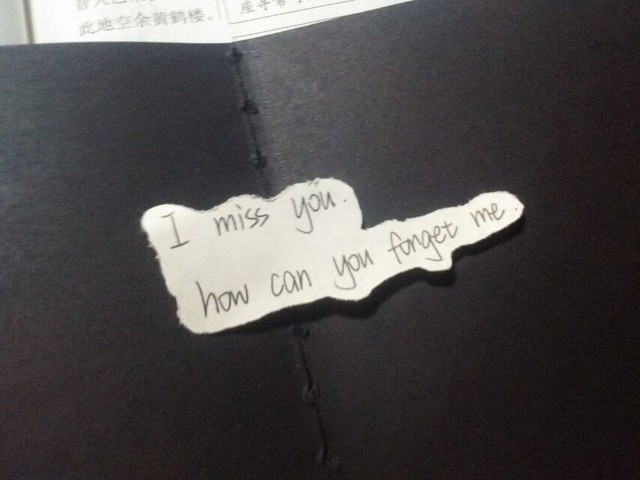 此地空余黄鹤楼。
I miss you.
how can you forget me.